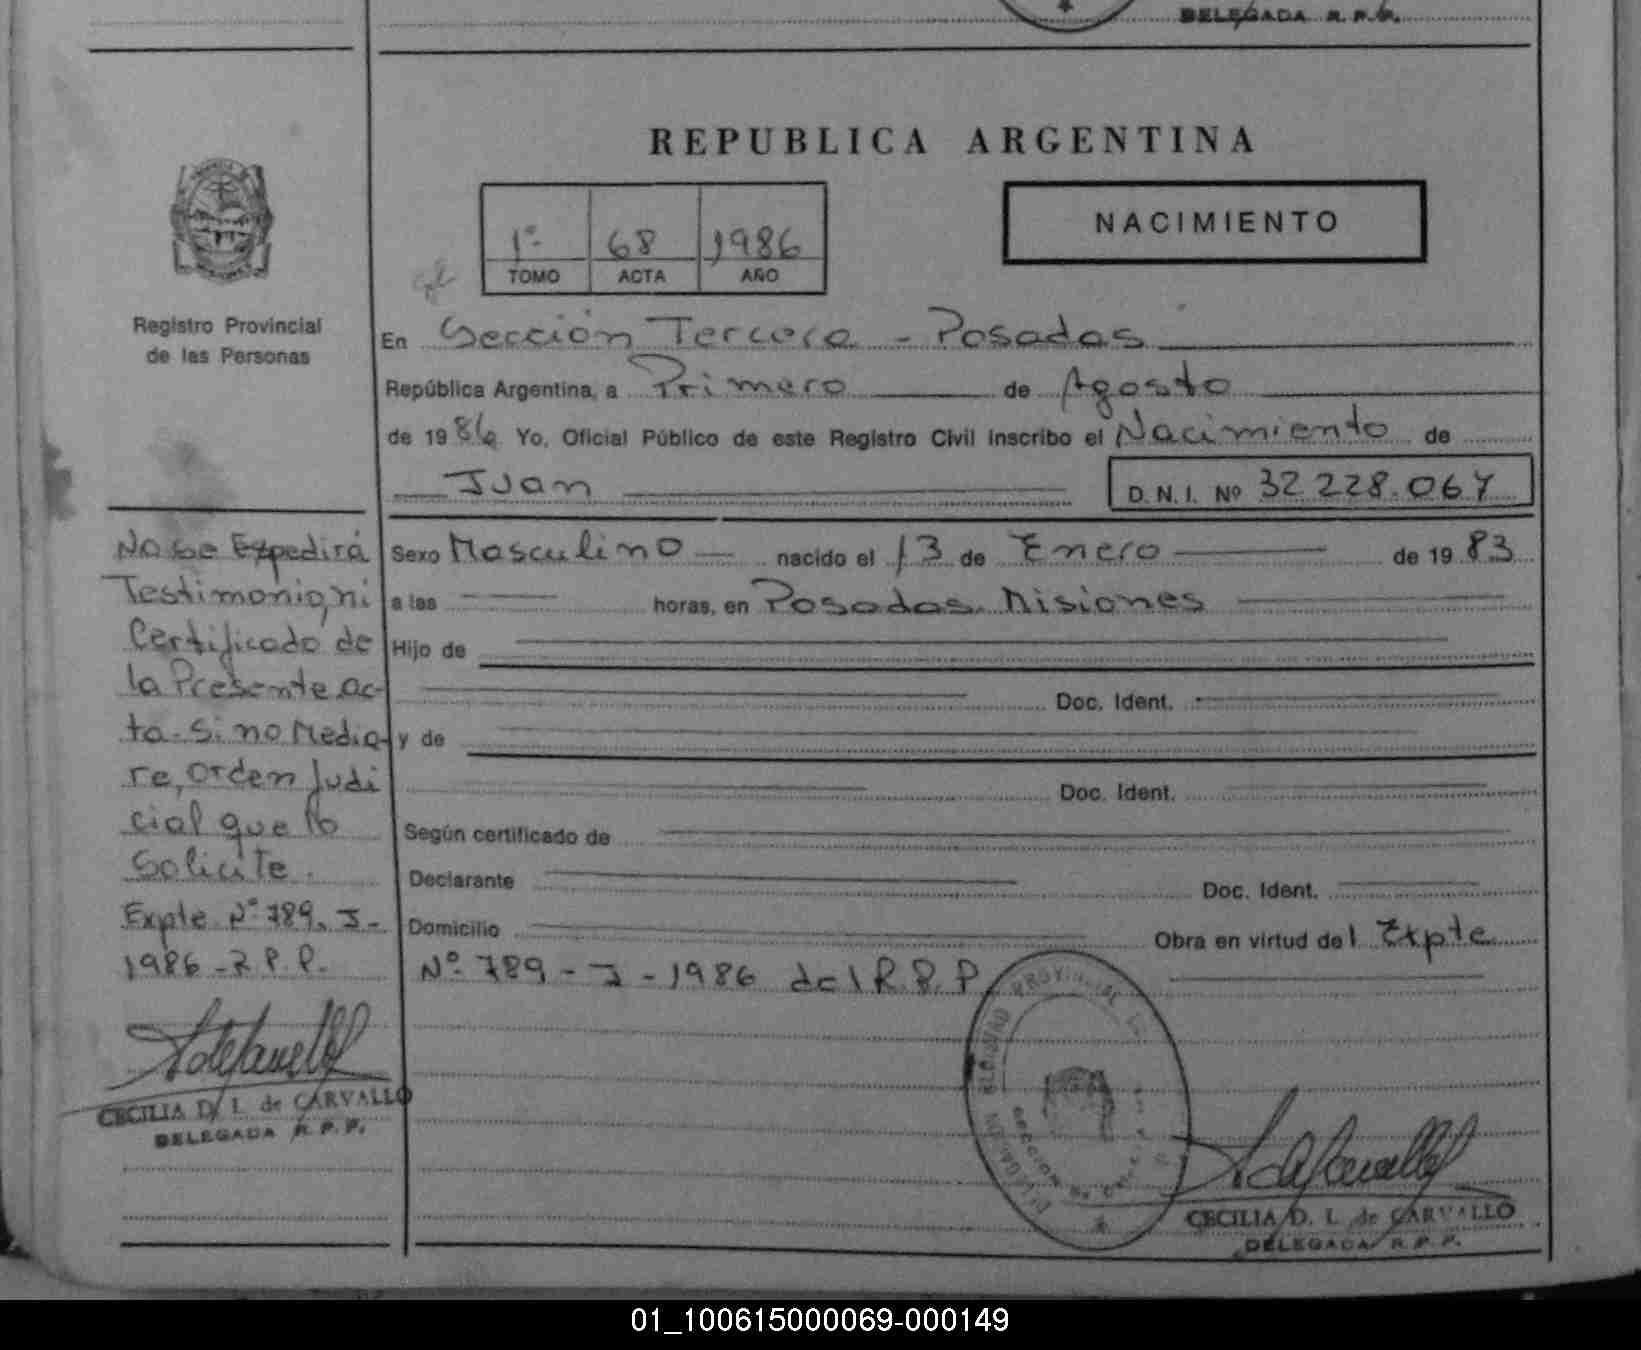 DELEGADA R. P. P.
REPUBLICA ARGENTINA
1º 68 1986
TOMO ACTA AÑO
NACIMIENTO
Registro Provincial
de las Personas
En Sección Tercera - Posadas
República Argentina, a Primero de Agosto
de 1986 Yo, Oficial Público de este Registro Civil inscribo el Nacimiento de
Juan D. N. I. Nº 32.228.067
Sexo Masculino nacido el 13 de Enero de 1983
a las horas, en Posadas Misiones
Hijo de
Doc. Ident.
y de
Doc. Ident.
Según certificado de
Declarante Doc. Ident.
Domicilio Obra en virtud del Expte
Nº 789 - J - 1986 del R.P.P.
No se Expedirá
Testimonio, ni
Certificado de
la Presente ac-
ta. Si no Media-
re, orden Judi
cial que lo
Solicite.
Expte Nº 789. J-
1986 - R.P.P.
CECILIA D. I. de CARVALLO
DELEGADA R. P. P.
PROVINCIAL
CECILIA D. I. de CARVALLO
DELEGADA R. P. P.
01_100615000069-000149